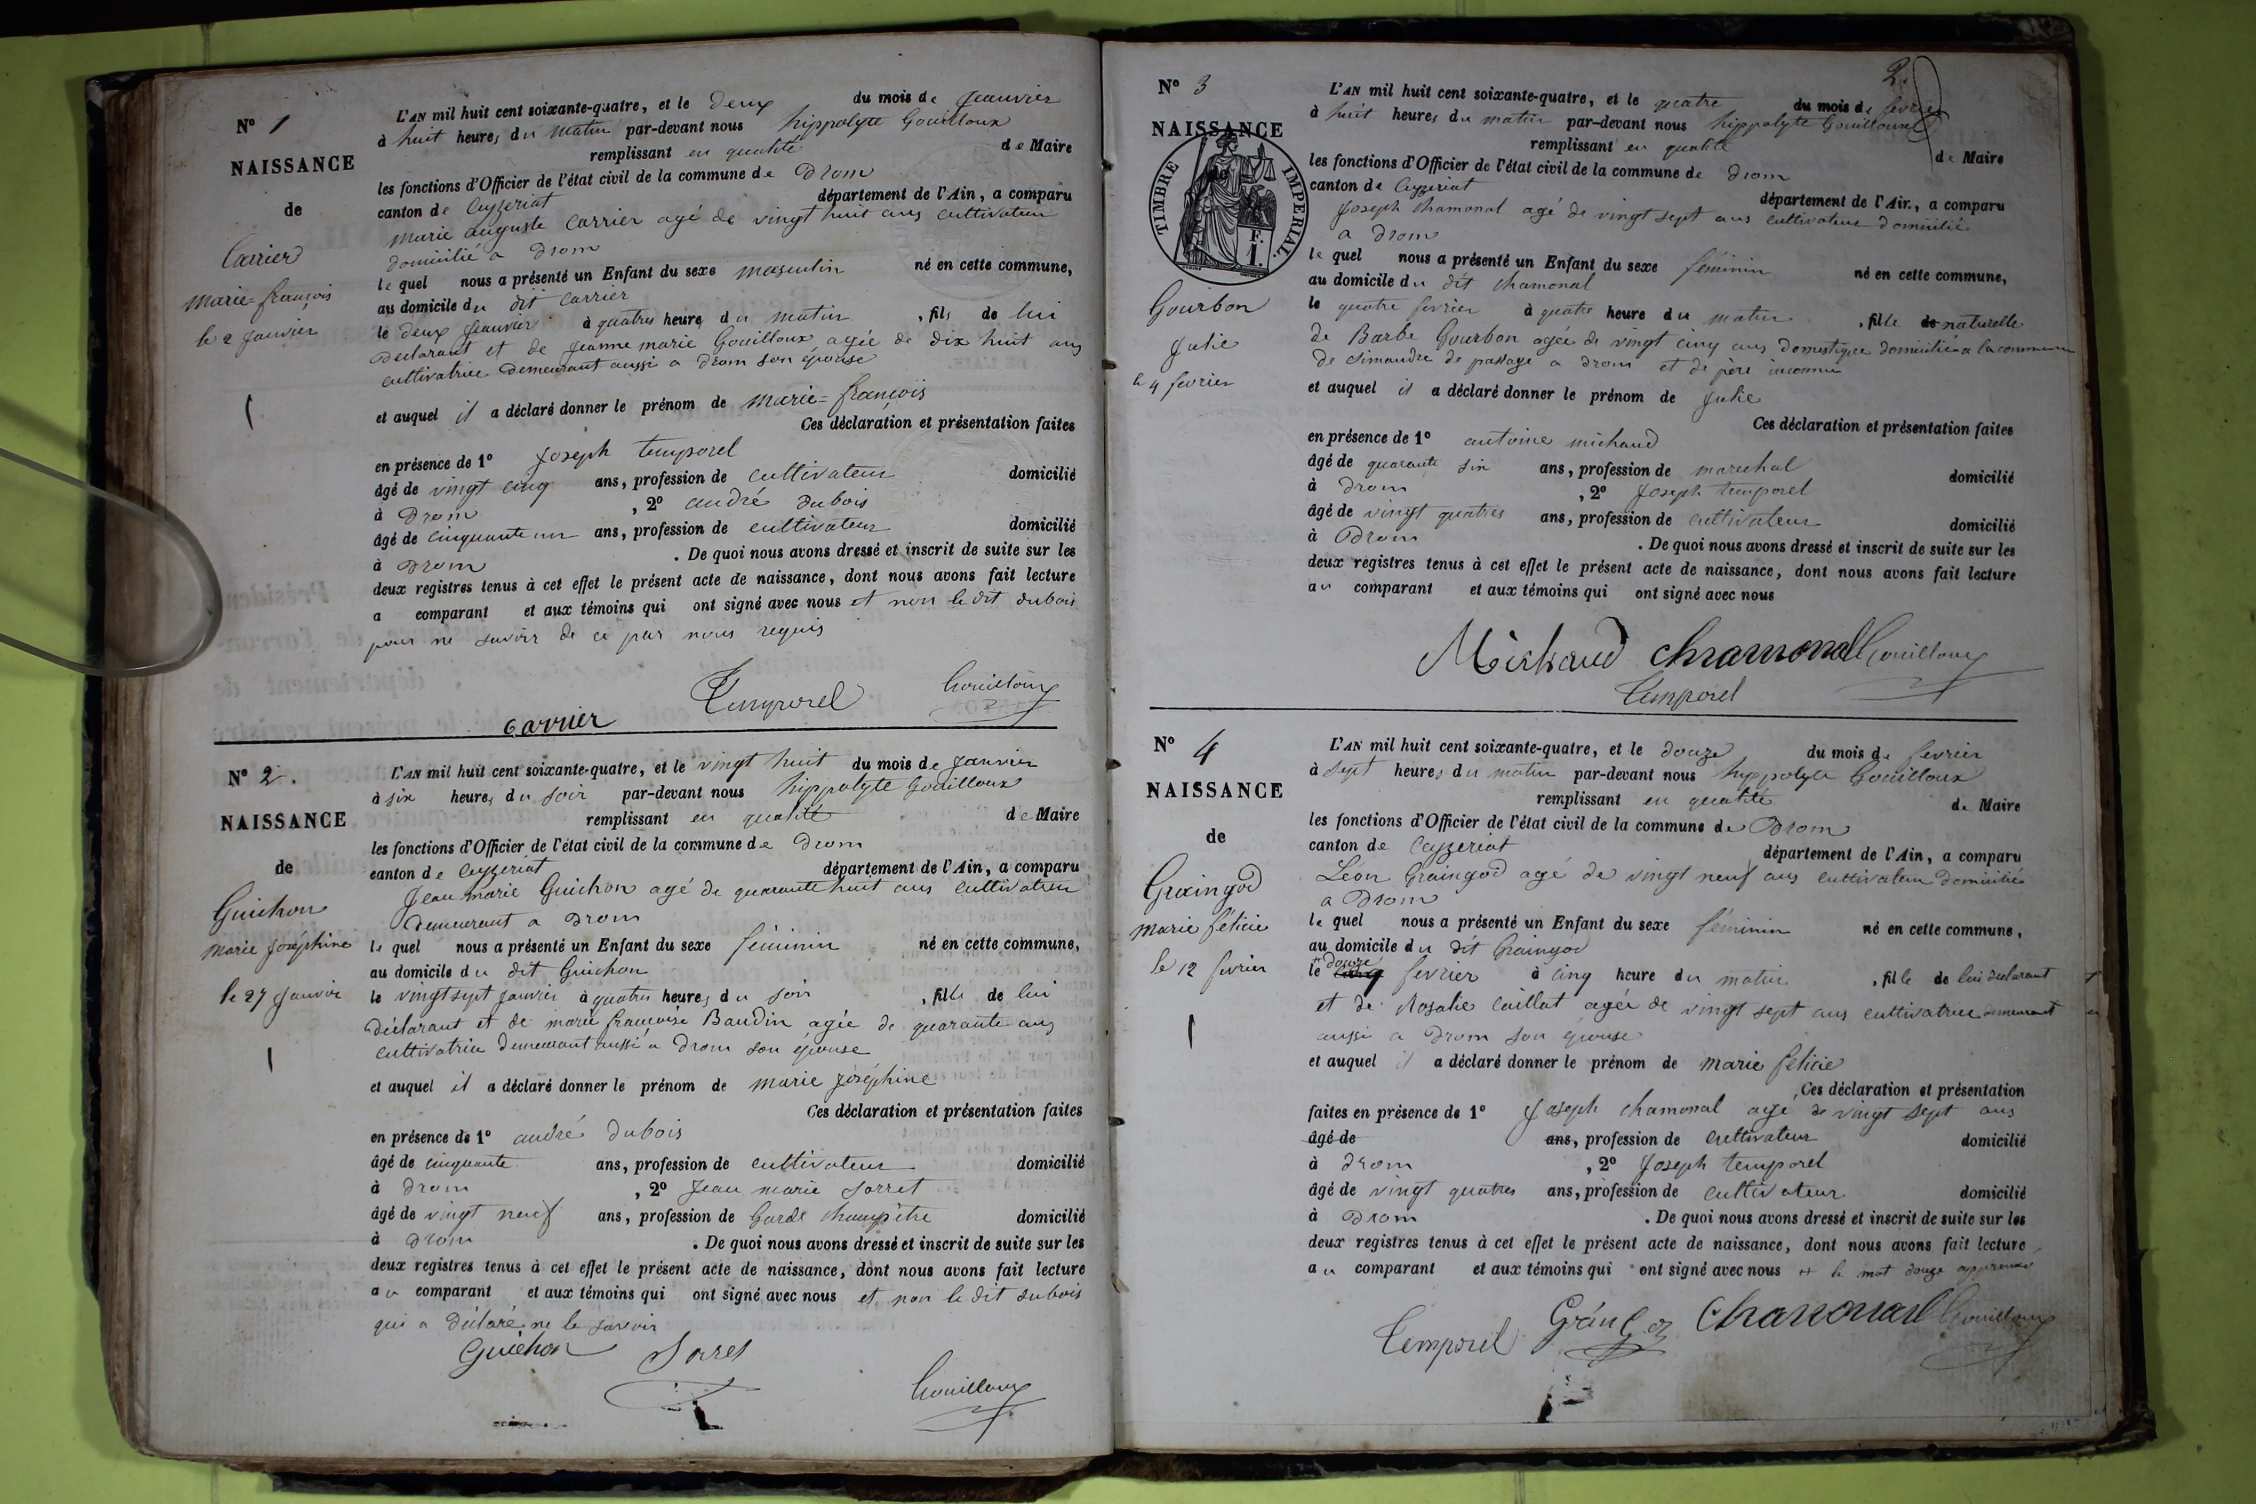 N° 1
NAISSANCE
de
Carrier
marie=françois
le 2 Janvier
L'AN mil huit cent soixante-quatre, et le deux du mois de Jeanvier
à huit heures du matin par-devant nous hippolyte Gouilloux
remplissant en qualité de Maire
les fonctions d'Officier de l'état civil de la commune de Drom
canton de Ceyzeriat département de l'Ain, a comparu
marie auguste Carrier agé de vingt huit ans cultivateur
domicilié a Drom
le quel nous a présenté un Enfant du sexe masculin né en cette commune,
au domicile du dit Carrier
le deux Jeanvier à quatres heures du matin , fils de lui
Déclarant et de Jeanne marie Gouilloux agée de dix huit ans
cultivatrice Demeurant aussi a Drom son épouse
et auquel il a déclaré donner le prénom de marie=françois
Ces déclaration et présentation faites
en présence de 1° Joseph temporel
âgé de vingt cinq ans, profession de cultivateur domicilié
à Drom , 2° andré dubois
âgé de cinquante un ans, profession de cultivateur domicilié
à Drom . De quoi nous avons dressé et inscrit de suite sur les
deux registres tenus à cet effet le présent acte de naissance, dont nous avons fait lecture
a comparant et aux témoins qui ont signé avec nous et non le dit dubois
pour ne savoir de ce par nous requis
Carrier Temporel Gouilloux
N° 2.
NAISSANCE
de
Guichon
marie Joséphine
le 27 Janvier
L'AN mil huit cent soixante-quatre, et le vingt huit du mois de Janvier
à six heures du soir par-devant nous hippolyte Gouilloux
remplissant en qualité de Maire
les fonctions d'Officier de l'état civil de la commune de Drom
canton de Ceyzeriat département de l'Ain, a comparu
Jean marie Guichon agé de quarante huit ans cultivateur
Demeurant a Drom
le quel nous a présenté un Enfant du sexe féminin né en cette commune,
au domicile du dit Guichon
le vingt sept Janvier à quatres heures du soir , fille de lui
déclarant et de marie françoise Baudin agée de quarante ans
cultivatrice Demeurant aussi a Drom son épouse
et auquel il a déclaré donner le prénom de marie Joséphine
Ces déclaration et présentation faites
en présence de 1° andré Dubois
âgé de cinquante ans, profession de cultivateur domicilié
à Drom , 2° Jean marie Sorret
âgé de vingt neuf ans, profession de Garde champêtre domicilié
à Drom . De quoi nous avons dressé et inscrit de suite sur les
deux registres tenus à cet effet le présent acte de naissance, dont nous avons fait lecture
au comparant et aux témoins qui ont signé avec nous et non le dit dubois
qui a Déclaré ne le savoir
Guichon Sorret
Gouilloux
2
N° 3
NAISSANCE
TIMBRE IMPERIAL
F.
1.
Gourbon
Julie
le 4 fevrier
L'AN mil huit cent soixante-quatre, et le quatre du mois de fevrier
à huit heures du matin par-devant nous hippolyte Gouilloux
remplissant en qualité de Maire
les fonctions d'Officier de l'état civil de la commune de Drom
canton de Ceyzeriat département de l'Ain, a comparu
Joseph chamonal agé de vingt sept ans cultivateur domicilié
a Drom
le quel nous a présenté un Enfant du sexe féminin né en cette commune,
au domicile du dit chamonal
le quatre fevrier à quatre heure du matin , fille de naturelle
de Barbe Gourbon agée de vingt cinq ans domestique domiciliée a la commune
de Simandre de passage a Drom et de père inconnu
et auquel il a déclaré donner le prénom de Julie
Ces déclaration et présentation faites
en présence de 1° antoine michaud
âgé de quarante six ans, profession de marechal domicilié
à Drom , 2° Joseph temporel
âgé de vingt quatres ans, profession de cultivateur domicilié
à Drom . De quoi nous avons dressé et inscrit de suite sur les
deux registres tenus à cet effet le présent acte de naissance, dont nous avons fait lecture
au comparant et aux témoins qui ont signé avec nous
Michaud Chamonal Gouilloux
Temporel
N° 4
NAISSANCE
de
Graingod
marie félicie
le 12 fevrier
L'AN mil huit cent soixante-quatre, et le douze du mois de fevrier
à sept heures du matin par-devant nous hippolyte Gouilloux
remplissant en qualité de Maire
les fonctions d'Officier de l'état civil de la commune de Drom
canton de Ceyzeriat département de l'Ain, a comparu
Léon Graingod agé de vingt neuf ans cultivateur Domicilié
a Drom
le quel nous a présenté un Enfant du sexe féminin né en cette commune,
au domicile du dit Graingod
le cinq douze fevrier à cinq heure du matin , fille de lui déclarant
et de Rosalie Caillat agée de vingt sept ans cultivatrice demeurant
aussi a Drom son épouse
et auquel il a déclaré donner le prénom de marie félicie
Ces déclaration et présentation
faites en présence de 1° Joseph chamonal agé de vingt sept ans
âgé de ans, profession de cultivateur domicilié
à Drom , 2° Joseph temporel
âgé de vingt quatres ans, profession de cultivateur domicilié
à Drom . De quoi nous avons dressé et inscrit de suite sur les
deux registres tenus à cet effet le présent acte de naissance, dont nous avons fait lecture
au comparant et aux témoins qui ont signé avec nous le mot douze approuvé
Temporel Chamonal Gouilloux